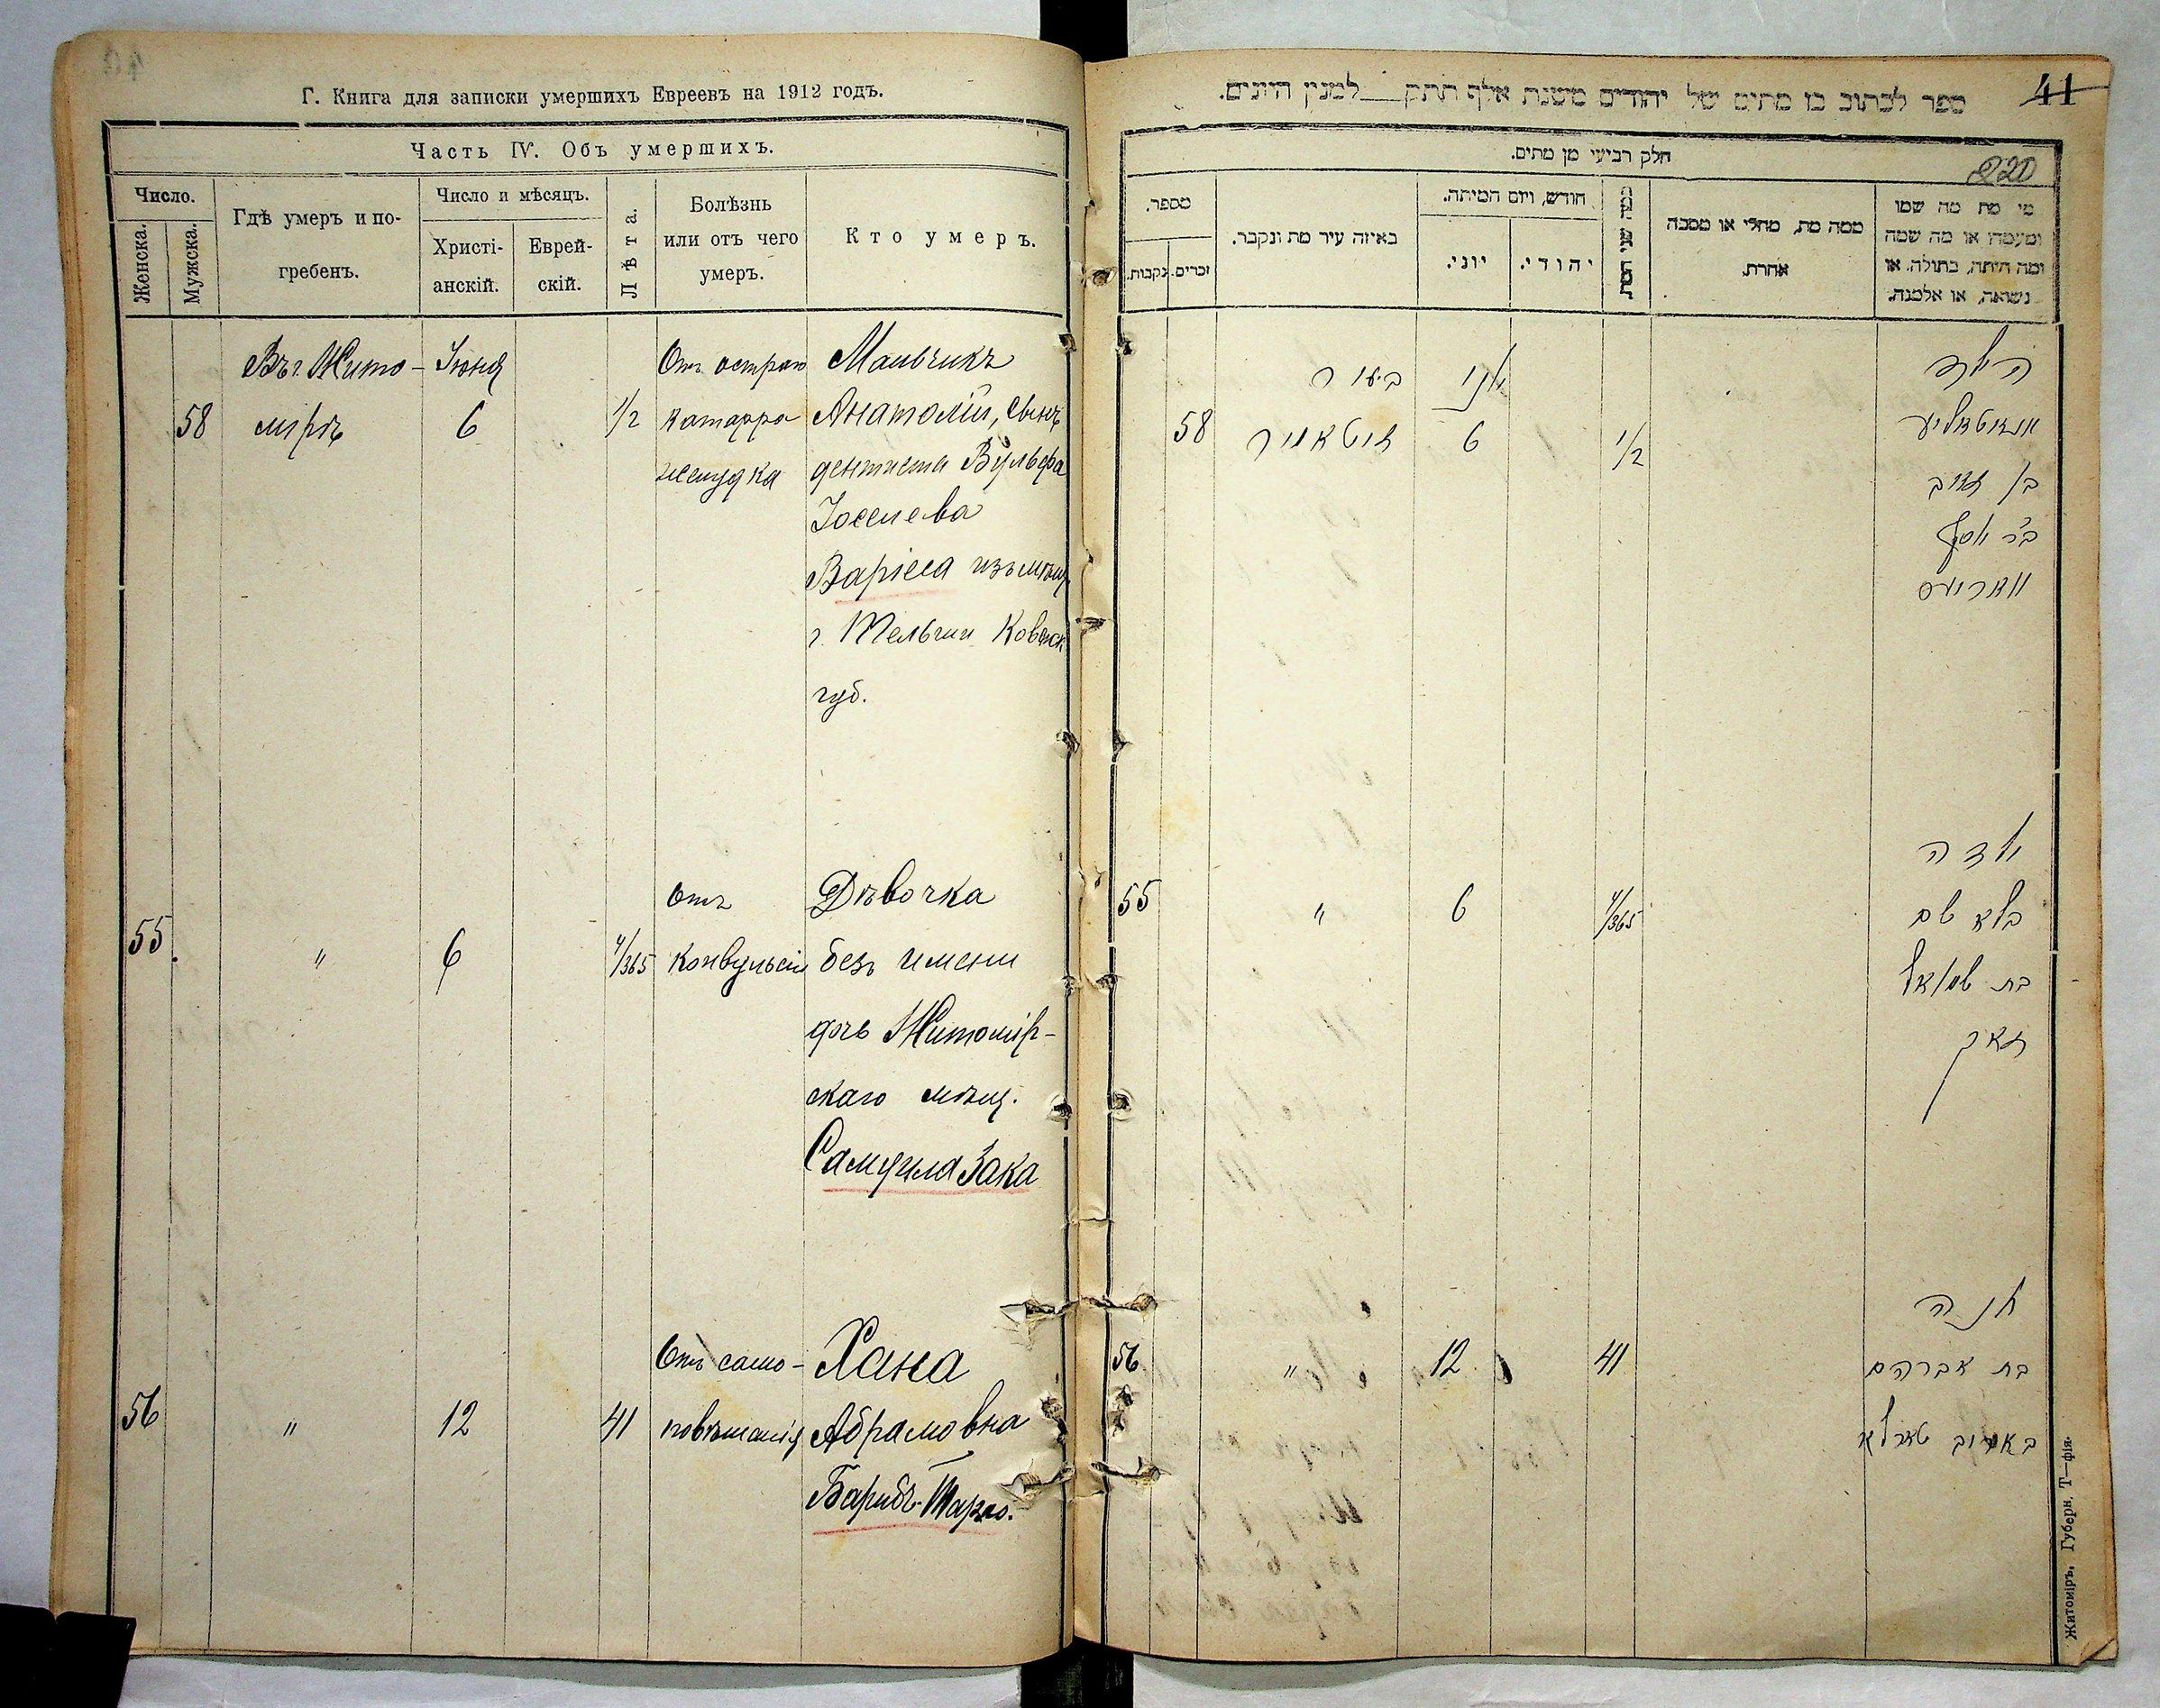 Г. Книга для записки умершихъ Евреевъ на 1912 годъ.
Часть IV. Объ умершихъ.
Число.
Женска.
Мужска.
Гдѣ умеръ и по-
гребенъ.
Число и мѣсяцъ.
Христі-
анскій.
Еврей-
скій.
Лѣта.
Болѣзнь
или отъ чего
умеръ.
Кто умеръ.
Въ г. Жито- Іюня Отъ остраго Мальчикъ
58 мірѣ 6 1/2 катарра Анатолій, сынъ
желудка дентиста Вульфа
Іоселева
Варіеса изъ мѣщ.
г. Тельши Ковенск
губ.
Отъ Дѣвочка
55 " 6 4/365 конвульсій безъ имени
дочь Житомір-
скаго мѣщ.
Самуила Зака
Отъ само- Хана
56 " 12 41 повѣшанія Абрамовна
Барибъ-Тарло.
41
220
ספר לכתוב בו מתים של יהודים משנת אלף תתק למנין היונים.
חלק רביעי מן מתים.
מספר.
נקבות.
זכרים.
באיזה עיר מת ונקבר.
חודש, ויום המיתה.
יוני.
יהודי.
כמה שני המת
ממה מת, מחלי או מסבה
אחרת.
מי מת מה שמו
ומעמדו או מה שמה
ומה היתה, בתולה, או
נשואה, או אלמנה.
הילד
יוני בעיר
58 זיטאמיר 6 1/2 אנאטאליע
בן זאב
ב"ר יוסף
וואריעס
ילדה
55 " 6 4/365 בלא שם
בת שמואל
זאק
חנה
56 " 12 41 בת אברהם
טארלא
Житоміръ, Губерн. Т—фія.